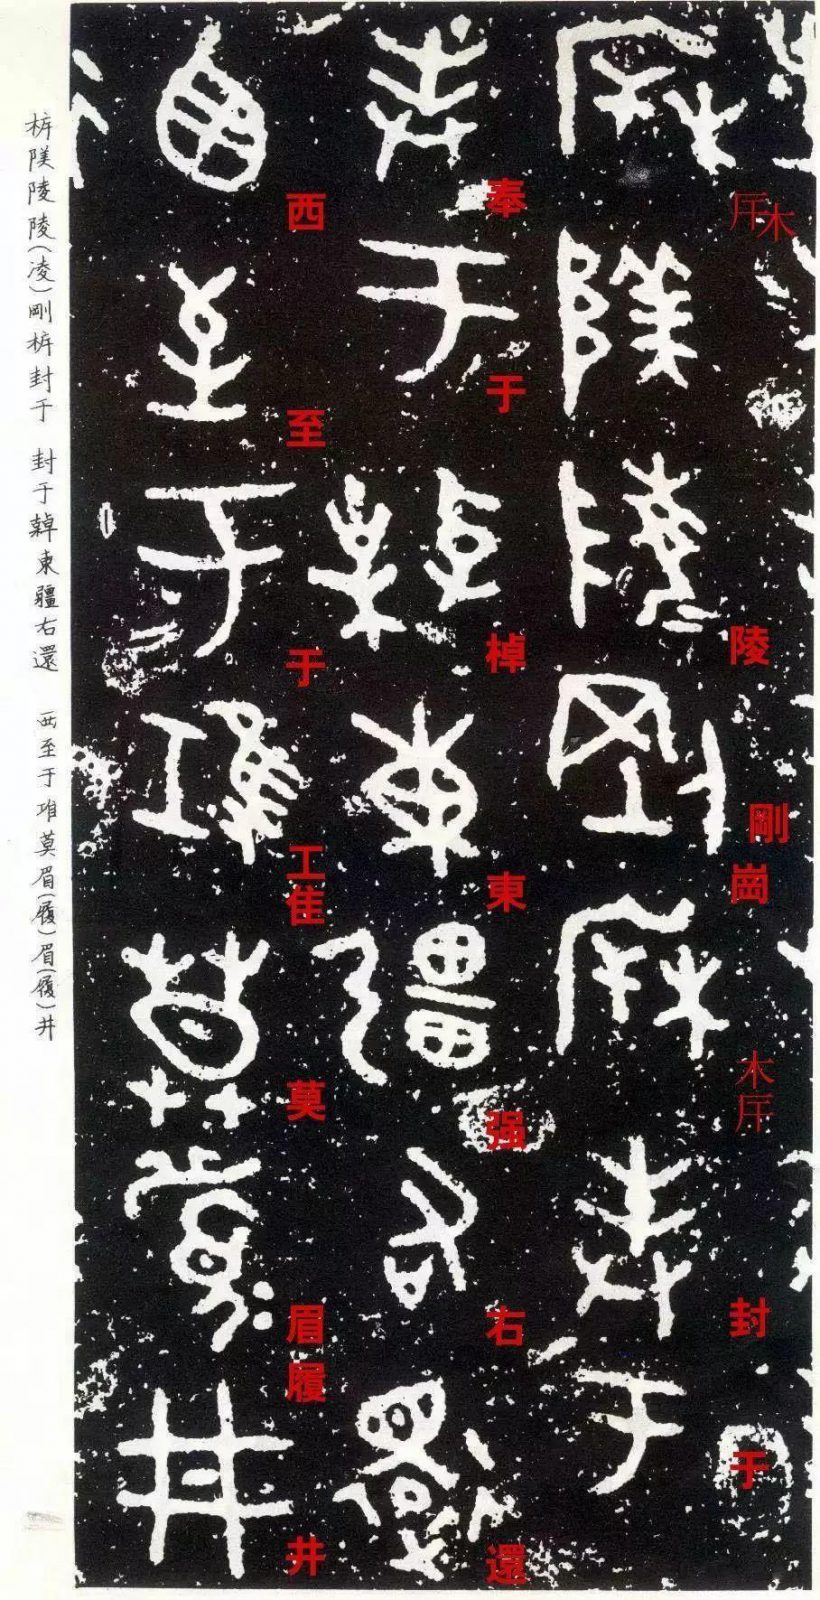 厈木陵剛崗木厈封于
奉于棹東强右還
西至于工隹莫眉履井
陵陵(凌)剛封于 封于東疆右還 西至于莫眉(履)眉(履)井